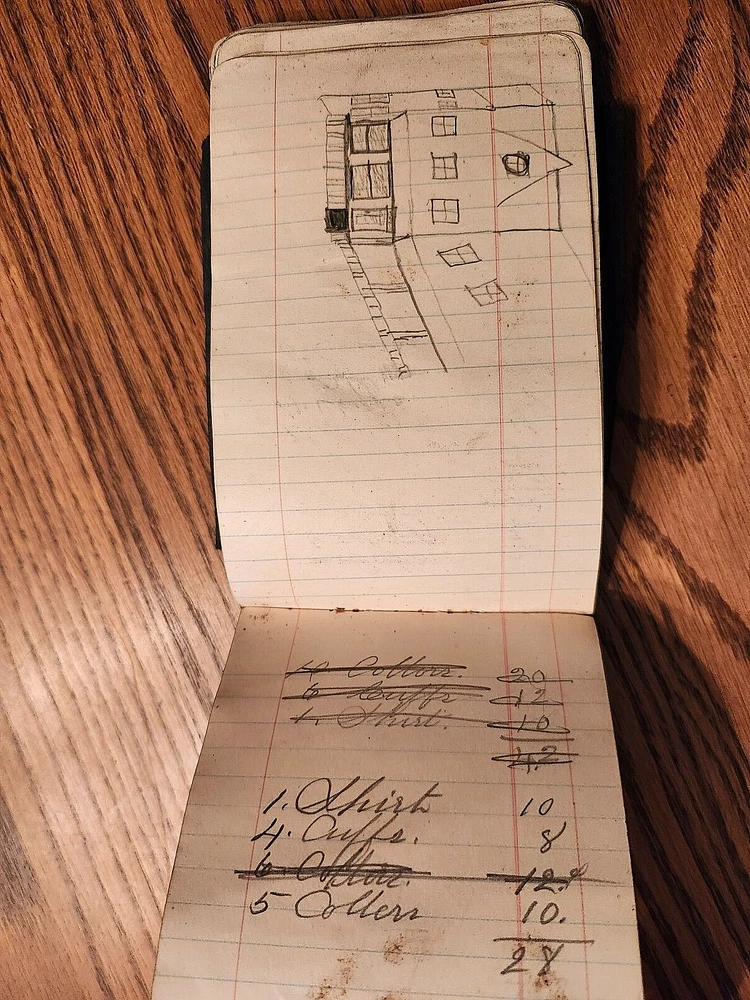 10 Collars. 20
6 Cuffs 12
1. Shirt. 10
42
1. Shirt 10
4. Cuffs. 8
6 Collars. 12.
5 Collers 10.
28